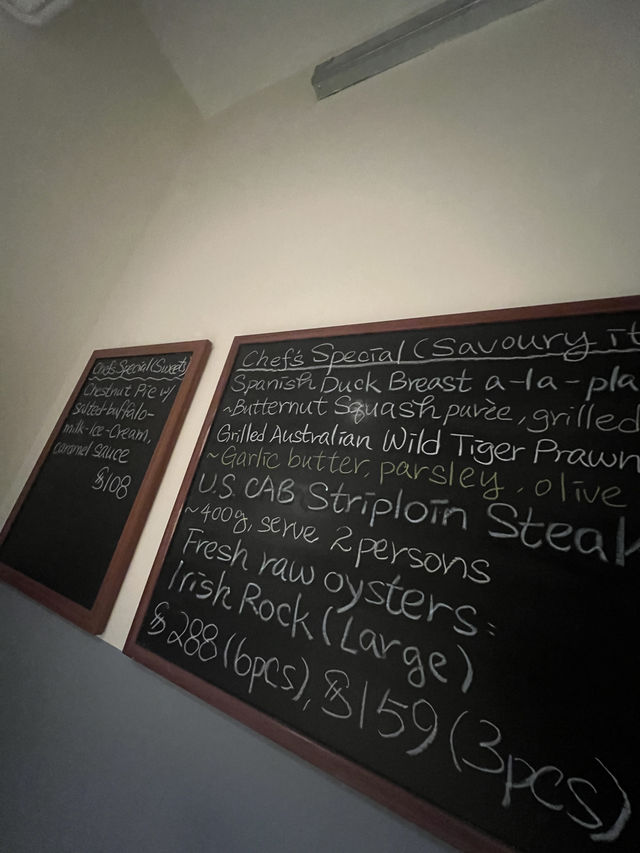 Chef's Special (Sweet)
Chestnut Pie w/
salted-buffalo-
milk-Ice-Cream,
caramel sauce
$108
Chef's Special (Savoury it
Spanish Duck Breast a-la-pla
~Butternut Squash purèe, grilled
Grilled Australian Wild Tiger Prawn
~Garlic butter, parsley, olive
U.S. CAB Striploin Steak
~400g, serve 2 persons
Fresh raw oysters:
Irish Rock (Large)
$288 (6pcs), $159 (3pcs)